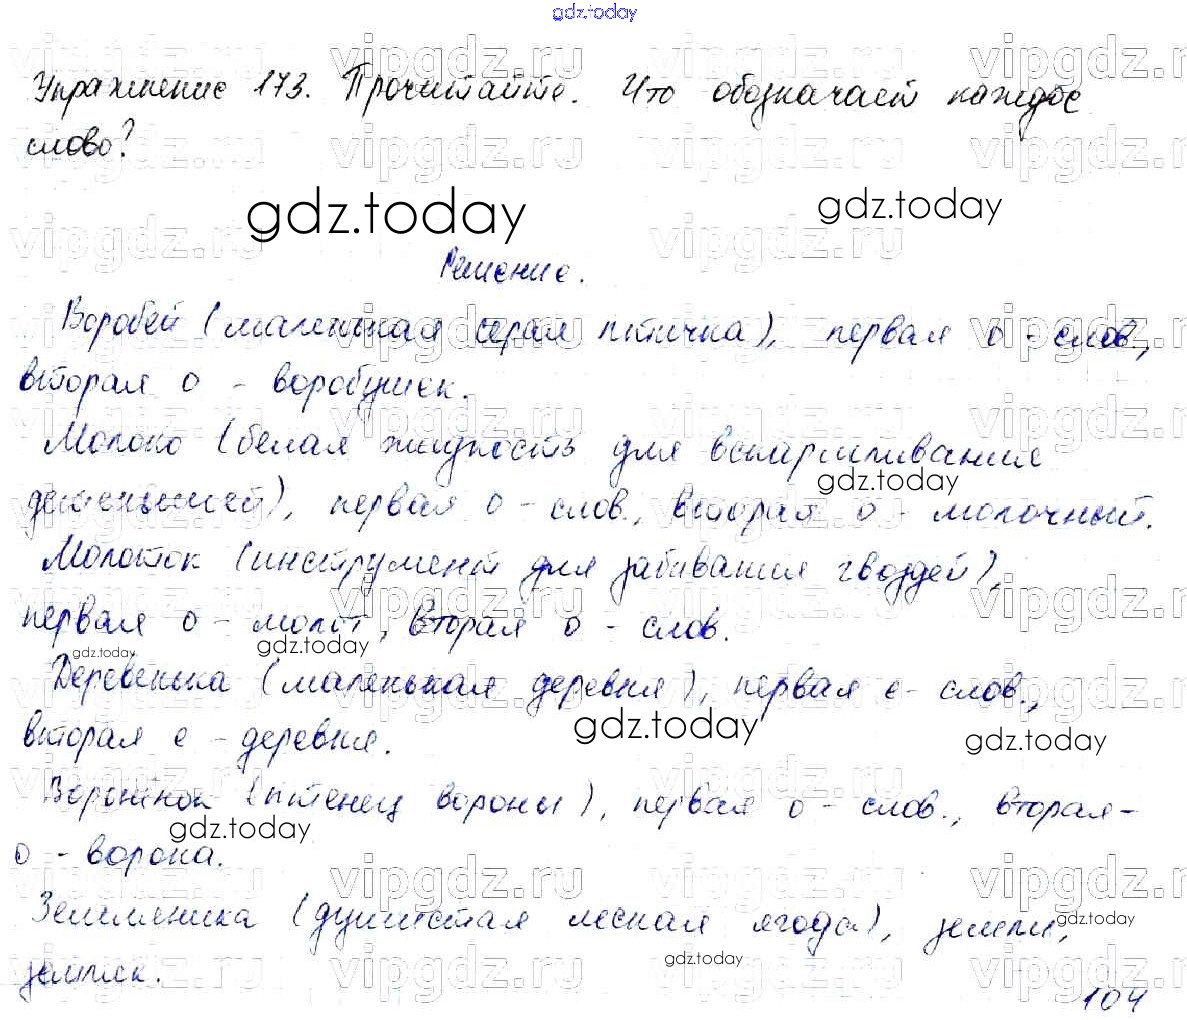 gdz.today
Упражнение 173. Прочитайте. Что обозначает каждое
слово?
gdz.today gdz.today
Решение.
Воробей (маленькая серая птичка), первая о - слов.,
вторая о - воробушек.
Молоко (белая жидкость для вскармливания
gdz.today
детенышей), первая о - слов., вторая о - молочный.
Молоток (инструмент для забивания гвоздей),
первая о - молот, вторая о - слов.
gdz.today gdz.today
Деревенька (маленькая деревня), первая е - слов.,
вторая е - деревня.
gdz.today gdz.today
Воронёнок (птенец вороны), первая о - слов., вторая -
gdz.today
о - ворона.
Земляника (душистая лесная ягода), земли,
gdz.today
землик.
gdz.today
104